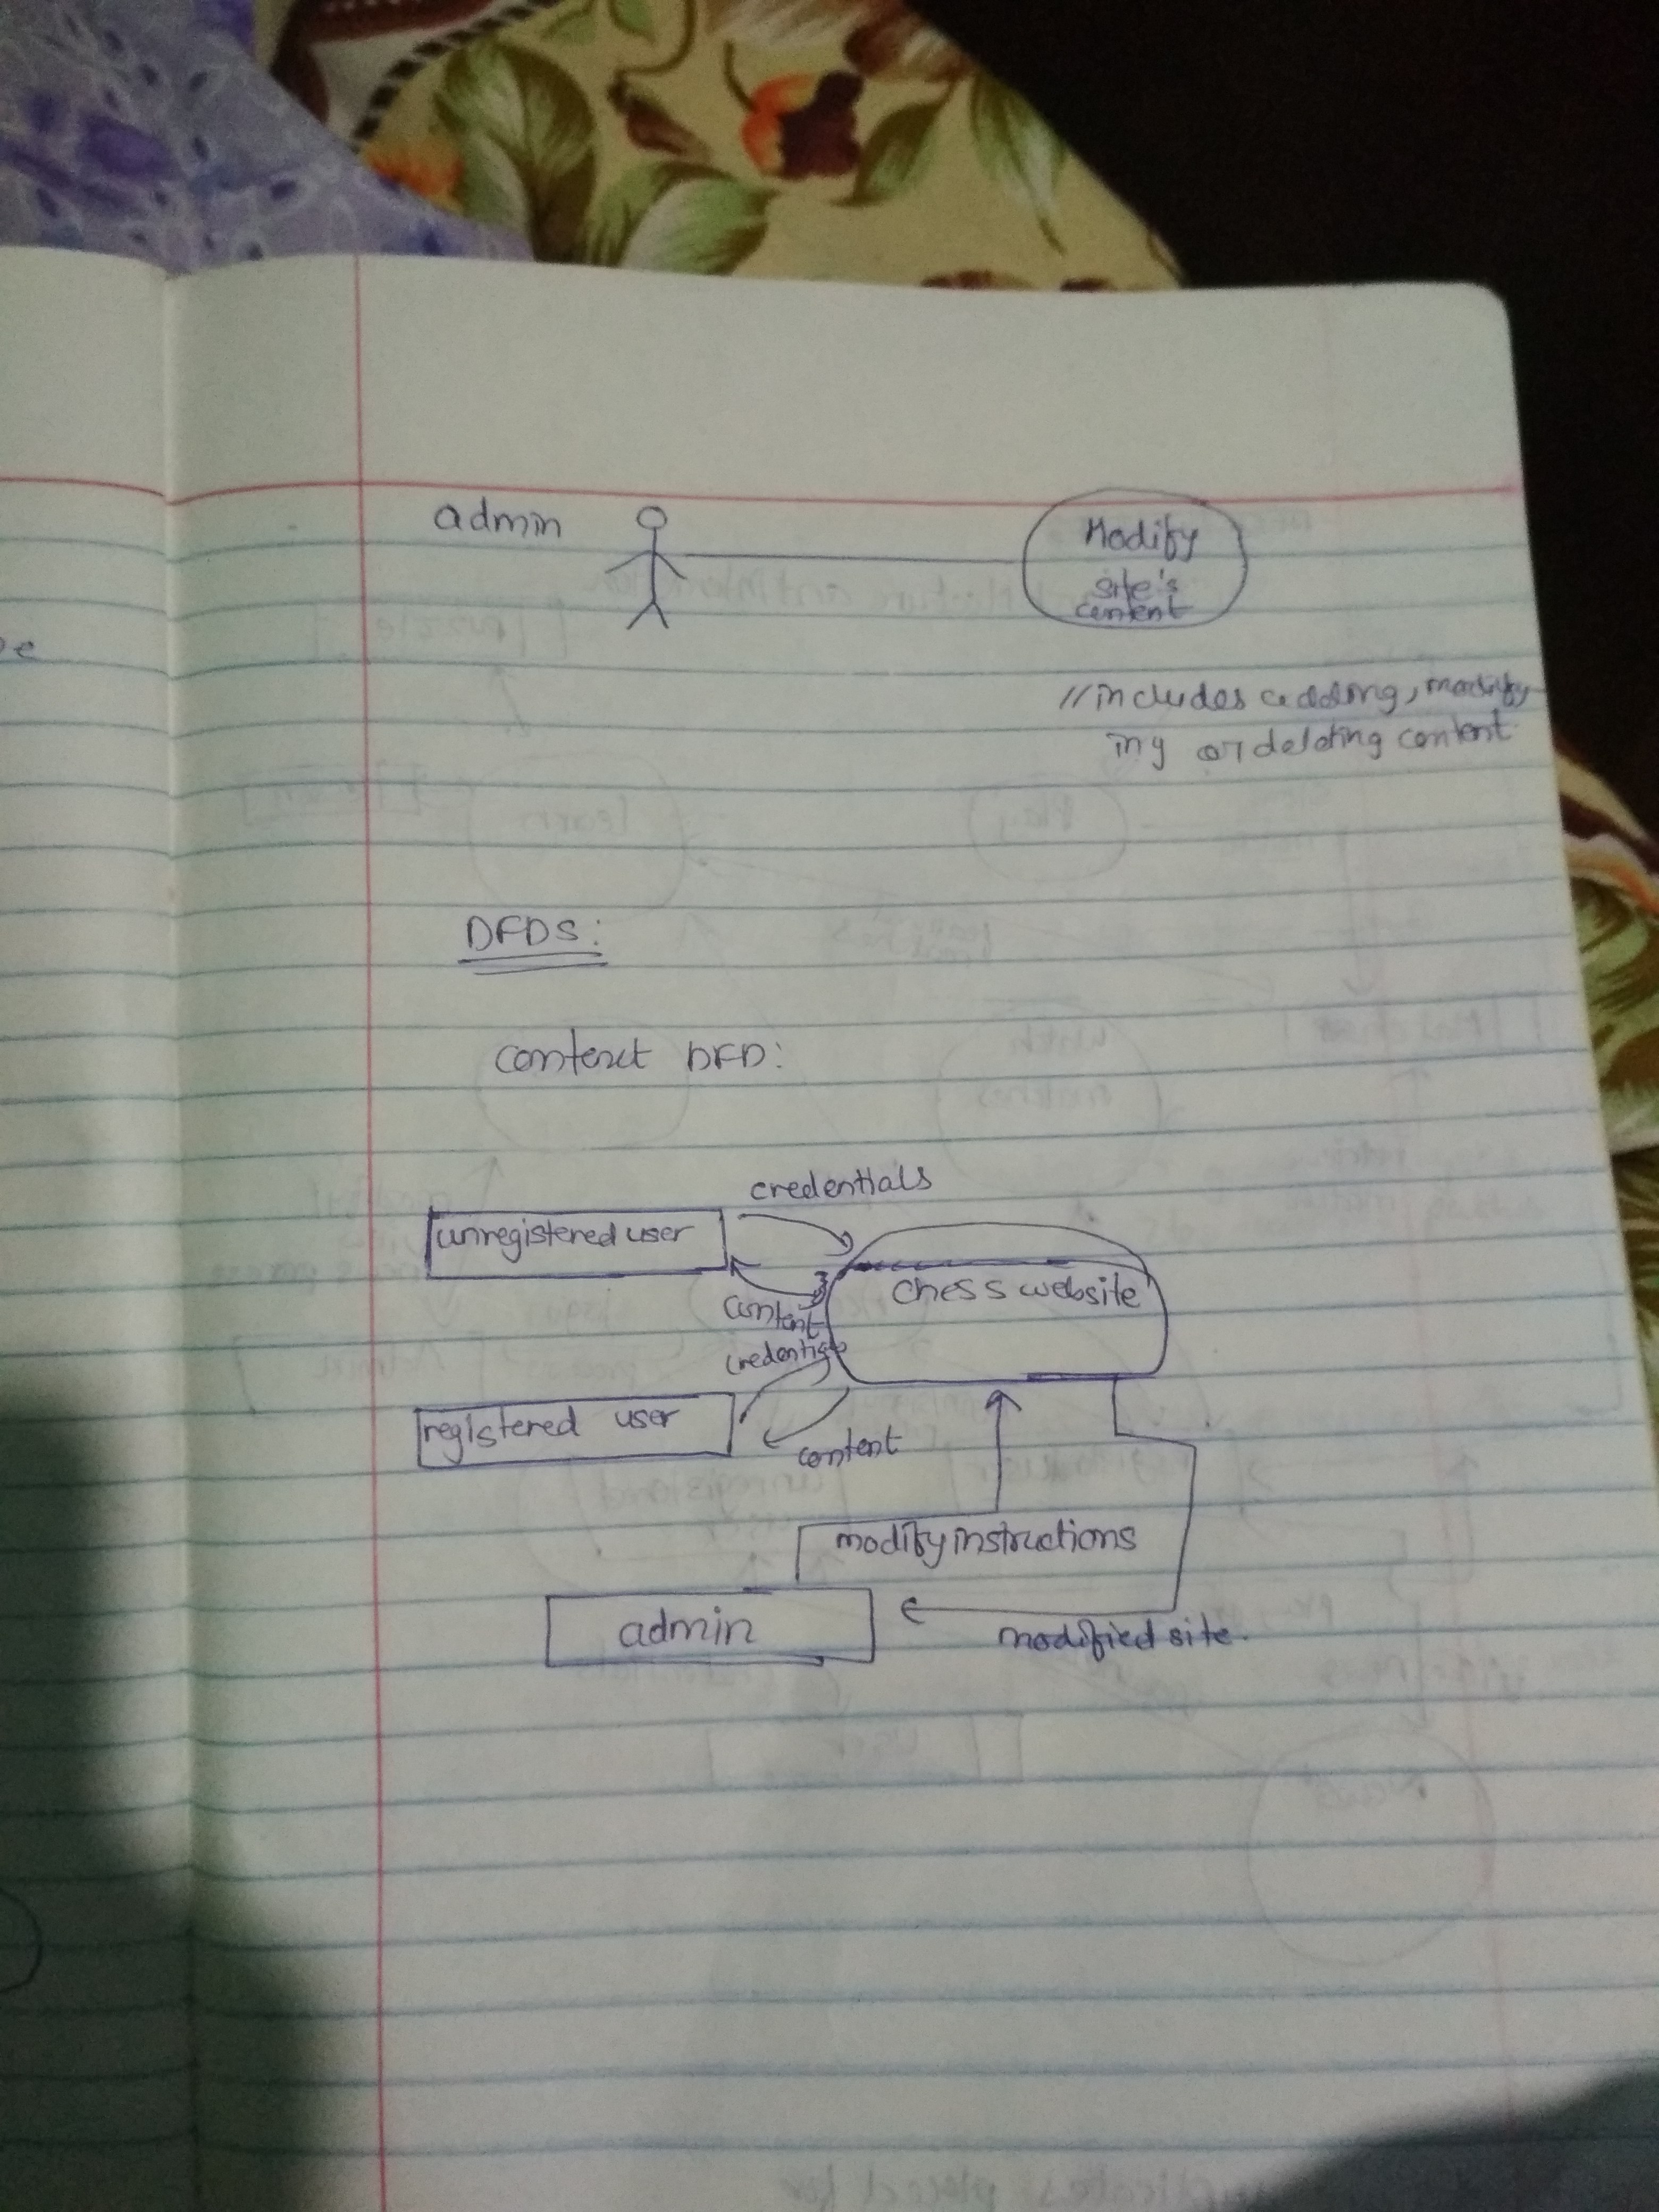 admin
Modify
site's
content
//includes adding, modify
ing or deleting content
DFDS:
context DFD:
credentials
unregistered user
chess website
content
credentials
registered user
content
modify instructions
admin
modified site.